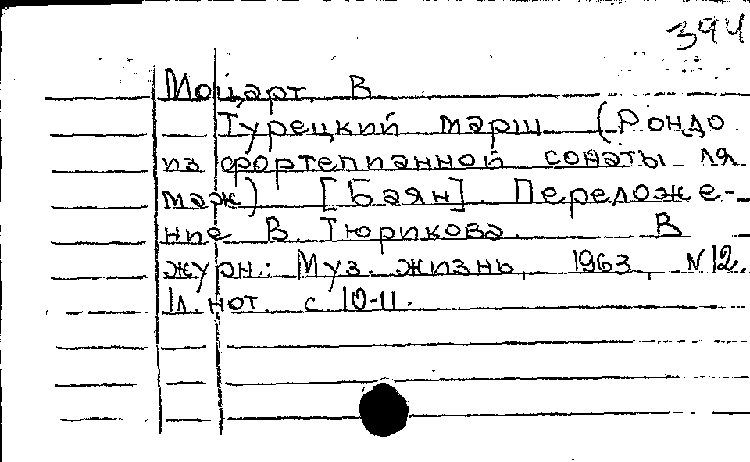 394
Моцарт В
Турецкий марш (Рондо
из фортепианной сонаты ля
маж) [Баян]. Переложе-
ние В. Тюрикова. В
журн.: Муз. жизнь, 1963, N 12.
1л. нот. с 10-11.